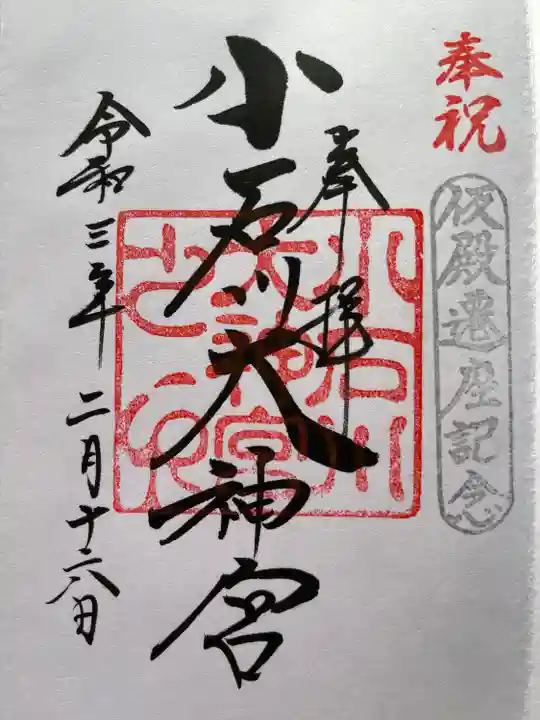 奉祝
仮殿遷座記念
奉拝
小石川大神宮
令和三年二月十六日
小石川
大神宮